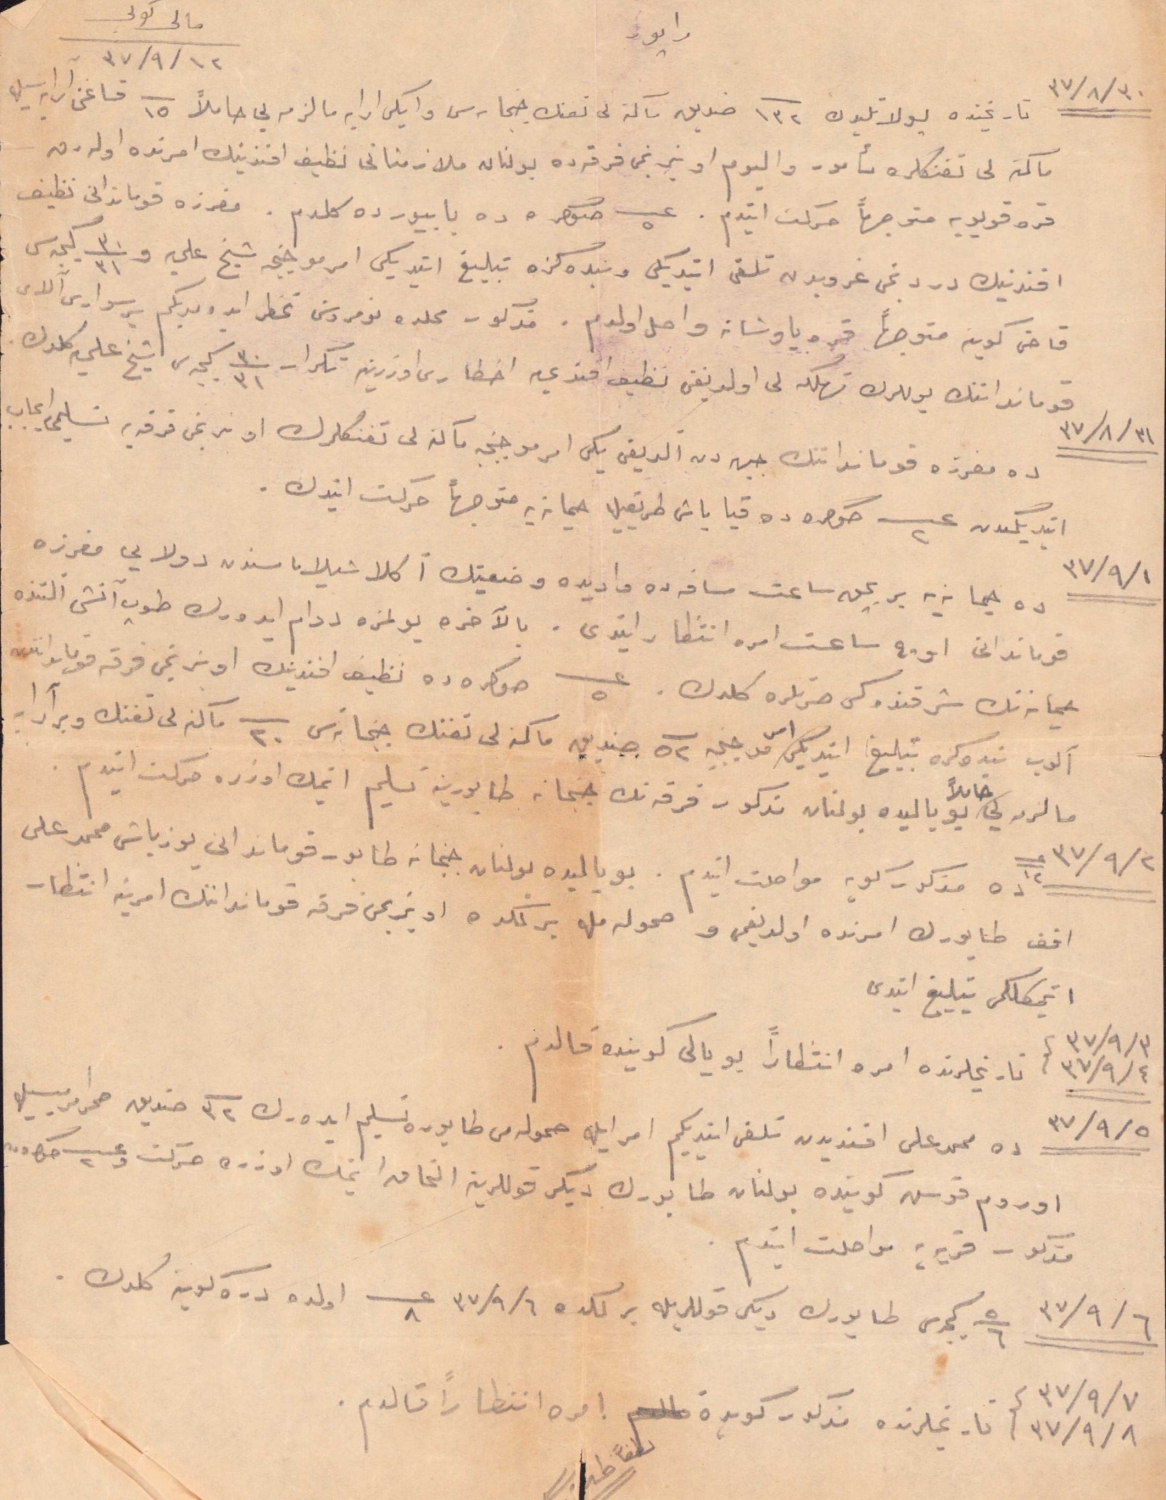 مالی کولی
٣٧/٩/١٢
راپور
٣٧/٨/٣٠ تاریخنده پولاتلیدن ١٣٢ صندیق ماکنه لی تفنك جبخانه سی و ایکی ارابه مالزمه یی حاملاً ١٥ قاغنی آرابه سیله
ماکنه لی تفنکلره مأمور والیوم اون برنجی فرقه ده بولنان ملازم ثانی نظیف افندینك امرنده اوله رق
قره قویویه متوجهاً حرکت ایتدم . صوکره ده یا بیورده کلدم . مفرزه قوماندانی نظیف
افندینك دردنجی غروبدن تلقی ایتدیکی و بنده کزه تبلیغ ایتدیکی امر موجبنجه شیخ علی و ٣٠/٣١ کیجه سی
قاضی کوینه متوجهاً قره یاوشانه واصل اولدم . مذکور محلده بر سواری آلای
قوماندانتك یوللرك تهلکه لی اولدیغنی نظیف افندی یه اخطاری اوزرینه تکرار ٣٠/٣١ کیجه سی شیخ علی یه کلدك .
٣٧/٨/٣١ ده مفرزه قوماندانتك جبهه دن آلدیغی یکی امر موجبنجه ماکنه لی تفنکلرك اون برنجی فرقه یه تسلیمی ایجاب
ایتدیکندن ٢ صوکره ده قیا باشی طریقیله حیمانه یه متوجهاً حرکت ایتدك .
٣٧/٩/١ ده حیمانه یه بر بچق ساعت مسافه ده وادیده وضعیتك آکلاشیلامامسندن دولایی مفرزه
قوماندانی اوچ ساعت امره انتظار ایتدی . بالآخره یولمزه دوام ایدورك طوپ آتشی آلتنده
حیمانه نك شرقنده کی صرتلره کلدك . ٥ صوکره ده نظیف افندینك اون برنجی فرقه قوماندانندن
آلوب بنده کزه تبلیغ ایتدیکی امر موجبنجه ٥٢ صندیق ماکنه لی تفنك جبخانه سی ٢٠ ماکنه لی تفنك و بر آرابه
مالزمه یی حاملاً بویالیده بولنان مذکور فرقه نك جبخانه طابورینه تسلیم ایتمك اوزره حرکت ایتدم .
٣٧/٩/٢ ١٢ ده مذکور کویه مواصلت ایتدم . بویالیده بولنان جبخانه طابور قوماندانی یوزباشی محمد علی
افند طابورك امرنده اولدیغمی و حموله مله برلکده اون برنجی فرقه قوماندانتك امرینه انتظار
ایتمکلکمی تبلیغ ایتدی
٣٧/٩/٣
٣٧/٩/٤ تاریخلرنده امره انتظاراً بویالی کوینده قالدم .
٣٧/٩/٥ ده محمد علی افندیدن تلقی ایتدیکم امر ایله حموله می طابوره تسلیم ایده رك ٣٢ صندیق
اوروم قوسی کوینده بولنان طابورك دیکر قوللرینه التحاق ایتمك اوزره حرکت و ٢ صوکره ده
مذکور قریه یه مواصلت ایتدم .
٣٧/٩/٦ ٥/٦ کیجه سی طابورك دیکر قوللریله برلکده ٣٧/٩/٦ ٨ اولده دره کوینه کلدك .
٣٧/٩/٧
٣٧/٩/٨ تاریخلرنده مذکور کویده امره انتظاراً قالدم .